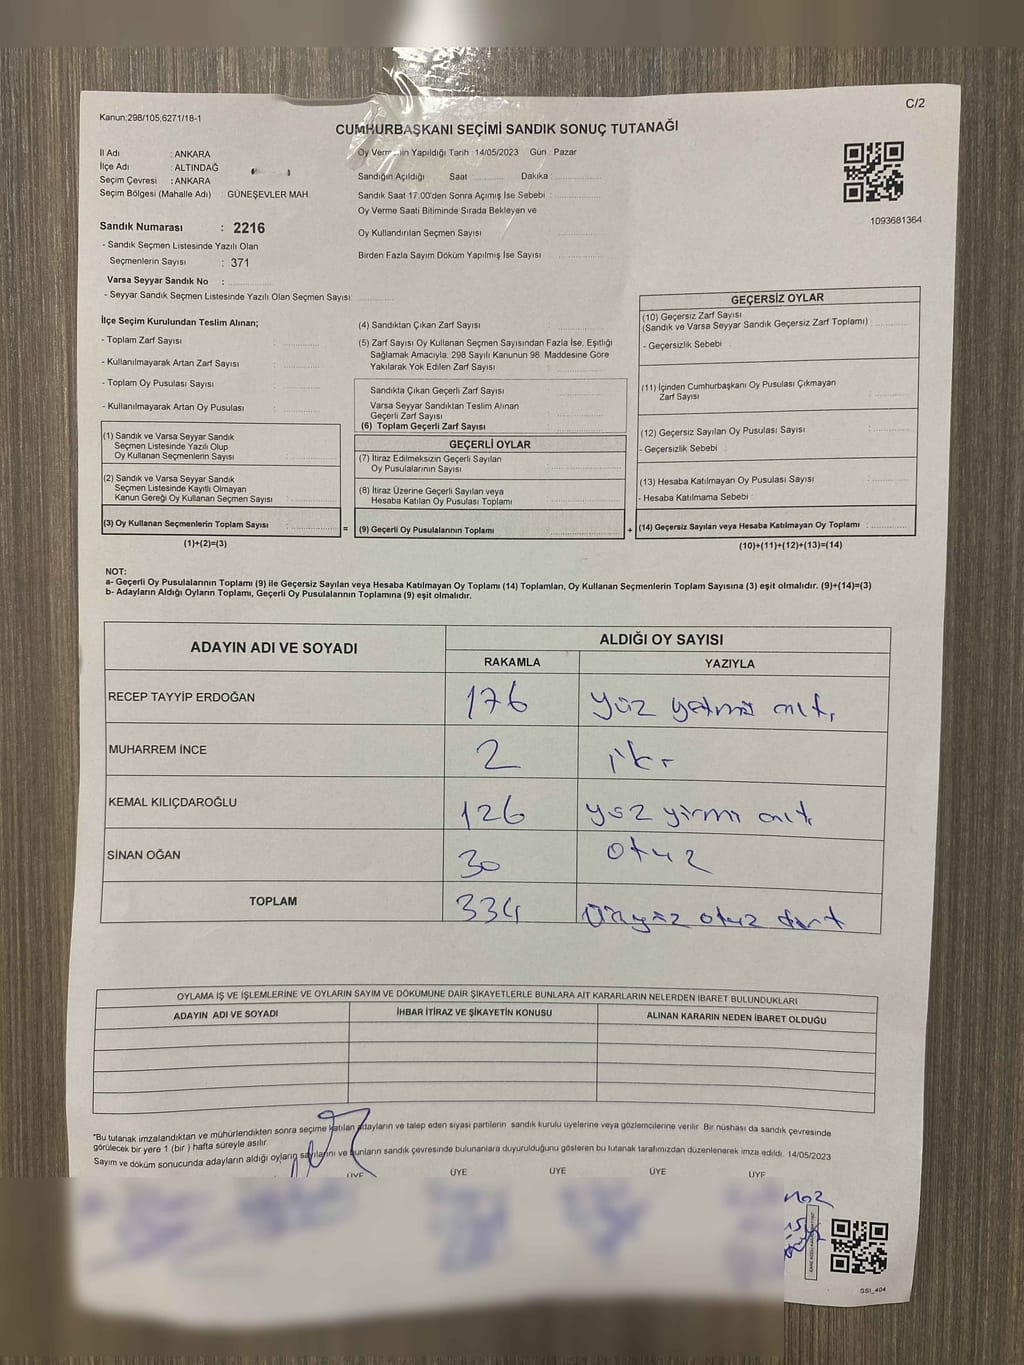 C/2
Kanun:298/105;6271/18-1
CUMHURBAŞKANI SEÇİMİ SANDIK SONUÇ TUTANAĞI
İl Adı : ANKARA
İlçe Adı : ALTINDAĞ
Seçim Çevresi : ANKARA
Seçim Bölgesi (Mahalle Adı) : GÜNEŞEVLER MAH.
Sandık Numarası : 2216
- Sandık Seçmen Listesinde Yazılı Olan
Seçmenlerin Sayısı : 371
Varsa Seyyar Sandık No :
- Seyyar Sandık Seçmen Listesinde Yazılı Olan Seçmen Sayısı:
Oy Vermenin Yapıldığı Tarih : 14/05/2023 Gün : Pazar
Sandığın Açıldığı Saat Dakika :
Sandık Saat 17:00'den Sonra Açımış İse Sebebi :
Oy Verme Saati Bitiminde Sırada Bekleyen ve
Oy Kullandırılan Seçmen Sayısı
Birden Fazla Sayım Döküm Yapılmış İse Sayısı
1093681364
İlçe Seçim Kurulundan Teslim Alınan;
- Toplam Zarf Sayısı :
- Kullanılmayarak Artan Zarf Sayısı :
- Toplam Oy Pusulası Sayısı :
- Kullanılmayarak Artan Oy Pusulası :
(1) Sandık ve Varsa Seyyar Sandık
Seçmen Listesinde Yazılı Olup
Oy Kullanan Seçmenlerin Sayısı :
(2) Sandık ve Varsa Seyyar Sandık
Seçmen Listesinde Kayıtlı Olmayan
Kanun Gereği Oy Kullanan Seçmen Sayısı :
(3) Oy Kullanan Seçmenlerin Toplam Sayısı :
(1)+(2)=(3)
(4) Sandıktan Çıkan Zarf Sayısı :
(5) Zarf Sayısı Oy Kullanan Seçmen Sayısından Fazla İse, Eşitliği
Sağlamak Amacıyla, 298 Sayılı Kanunun 98. Maddesine Göre
Yakılarak Yok Edilen Zarf Sayısı :
Sandıkta Çıkan Geçerli Zarf Sayısı
Varsa Seyyar Sandıktan Teslim Alınan
Geçerli Zarf Sayısı
(6) Toplam Geçerli Zarf Sayısı :
GEÇERLİ OYLAR
(7) İtiraz Edilmeksizin Geçerli Sayılan
Oy Pusulalarının Sayısı :
(8) İtiraz Üzerine Geçerli Sayılan veya
Hesaba Katılan Oy Pusulası Toplamı :
= (9) Geçerli Oy Pusulalarının Toplamı :
GEÇERSİZ OYLAR
(10) Geçersiz Zarf Sayısı
(Sandık ve Varsa Seyyar Sandık Geçersiz Zarf Toplamı) :
- Geçersizlik Sebebi :
(11) İçinden Cumhurbaşkanı Oy Pusulası Çıkmayan
Zarf Sayısı :
(12) Geçersiz Sayılan Oy Pusulası Sayısı :
- Geçersizlik Sebebi :
(13) Hesaba Katılmayan Oy Pusulası Sayısı :
- Hesaba Katılmama Sebebi :
+ (14) Geçersiz Sayılan veya Hesaba Katılmayan Oy Toplamı :
(10)+(11)+(12)+(13)=(14)
NOT:
a- Geçerli Oy Pusulalarının Toplamı (9) ile Geçersiz Sayılan veya Hesaba Katılmayan Oy Toplamı (14) Toplamları, Oy Kullanan Seçmenlerin Toplam Sayısına (3) eşit olmalıdır. (9)+(14)=(3)
b- Adayların Aldığı Oyların Toplamı, Geçerli Oy Pusulalarının Toplamına (9) eşit olmalıdır.
ADAYIN ADI VE SOYADI ALDIĞI OY SAYISI
RAKAMLA YAZIYLA
RECEP TAYYİP ERDOĞAN 176 yüz yetmiş altı
MUHARREM İNCE 2 iki
KEMAL KILIÇDAROĞLU 126 yüz yirmi altı
SİNAN OĞAN 30 otuz
TOPLAM 334 Üçyüz otuz dört
OYLAMA İŞ VE İŞLEMLERİNE VE OYLARIN SAYIM VE DÖKÜMÜNE DAİR ŞİKAYETLERLE BUNLARA AİT KARARLARIN NELERDEN İBARET BULUNDUKLARI
ADAYIN ADI VE SOYADI İHBAR İTİRAZ VE ŞİKAYETİN KONUSU ALINAN KARARIN NEDEN İBARET OLDUĞU
*Bu tutanak imzalandıktan ve mühürlendikten sonra seçime katılan adayların ve talep eden siyasi partilerin sandık kurulu üyelerine veya gözlemcilerine verilir. Bir nüshası da sandık çevresinde
görülecek bir yere 1 (bir) hafta süreyle asılır.
Sayım ve döküm sonucunda adayların aldığı oyların sayılarını ve bunların sandık çevresinde bulunanlara duyurulduğunu gösteren bu tutanak tarafımızdan düzenlenerek imza edildi. 14/05/2023
ÜYE ÜYE ÜYE ÜYE ÜYE
SSI_404